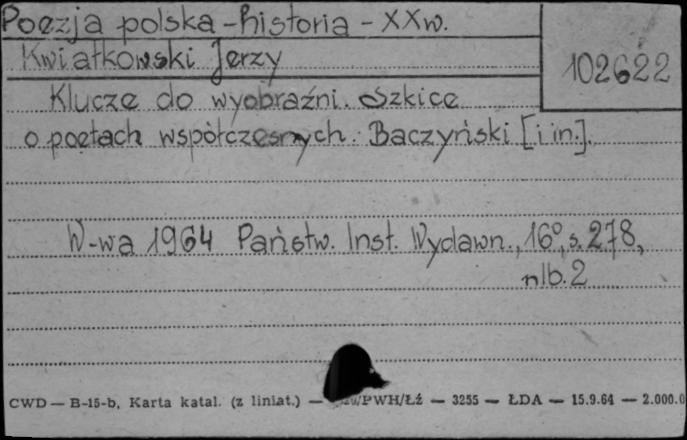 Poezja polska - historia - XX w.
Kwiatkowski Jerzy
102622
Klucze do wyobraźni. Szkice
o poetach współczesnych. Baczyński [i in.].
W-wa 1964 Państw. Inst. Wydawn., 16°, s. 278,
nlb. 2
CWD — B-15-b, Karta katal. (z liniat.) — PWH/Łź — 3255 — ŁDA — 15.9.64 — 2.000.0